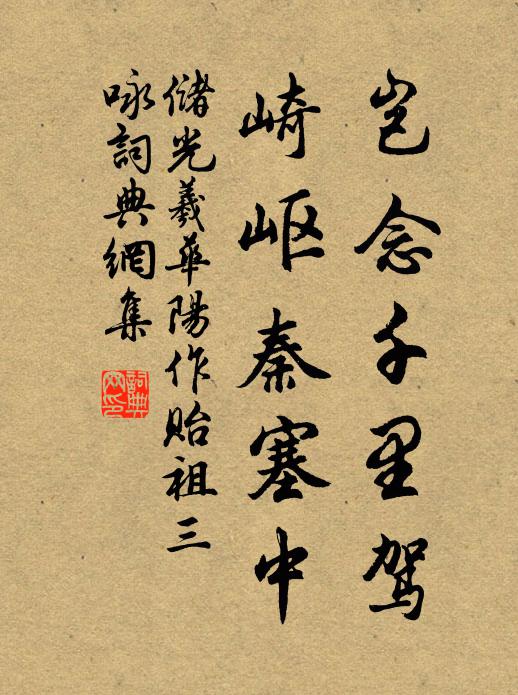 岂念千里駕
崎岖秦塞中
儲光羲華陽作貽祖三
咏詞典網集
詞典網印